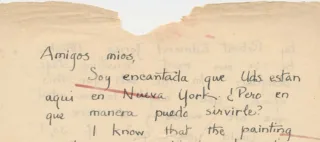 Amigos mios,
Soy encantada que Uds estan
aqui en Nueva York. ¿Pero en
que manera puedo sirvirle?
I know that the painting